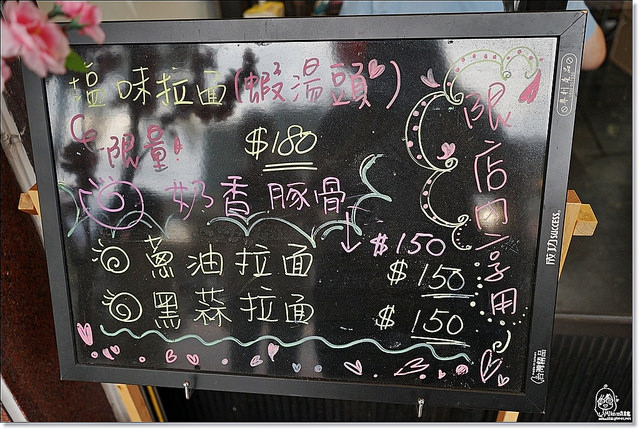 塩味拉面(蝦湯頭)
限量!
$180
奶香豚骨
$150
蔥油拉面
$150
黑蒜拉面
$150
限店內享用
成功 SUCCESS.
台灣精品